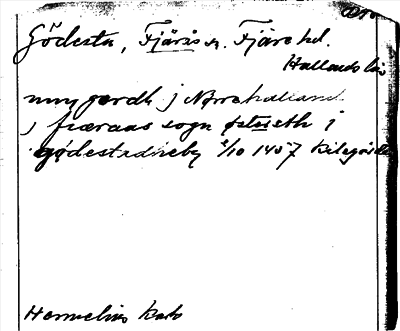 Gödesta, Fjärås sn. Fjäre hd.
Hallands län
myn gerdh j Nørrehalland
j fiæraas sogn østwseth i
gødestadheby 5/10 1457
Hermelins kart